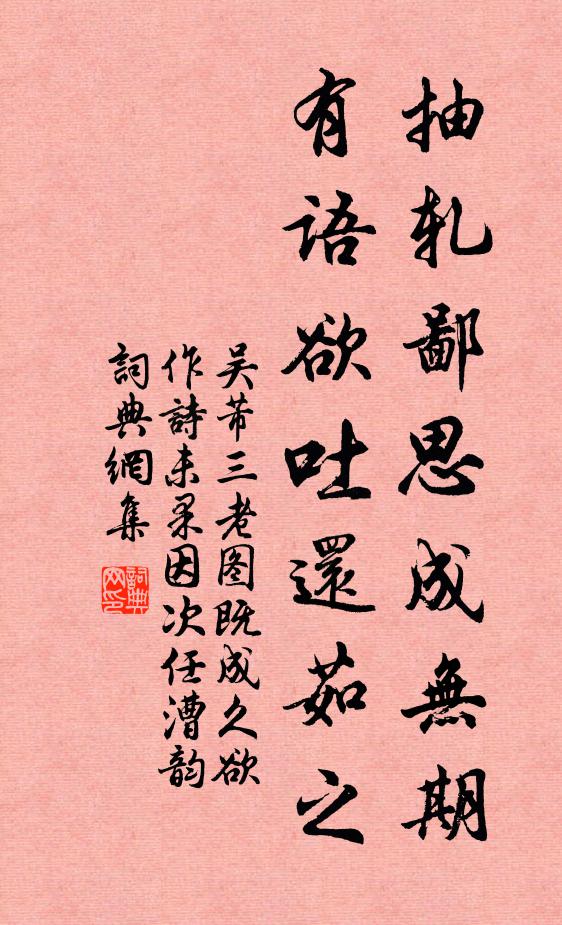 抽軋鄙思成無期
有語欲吐還茹之
吴芾三老图既成久欲
作詩未果因次任漕韵
詞典網集
詞典网印